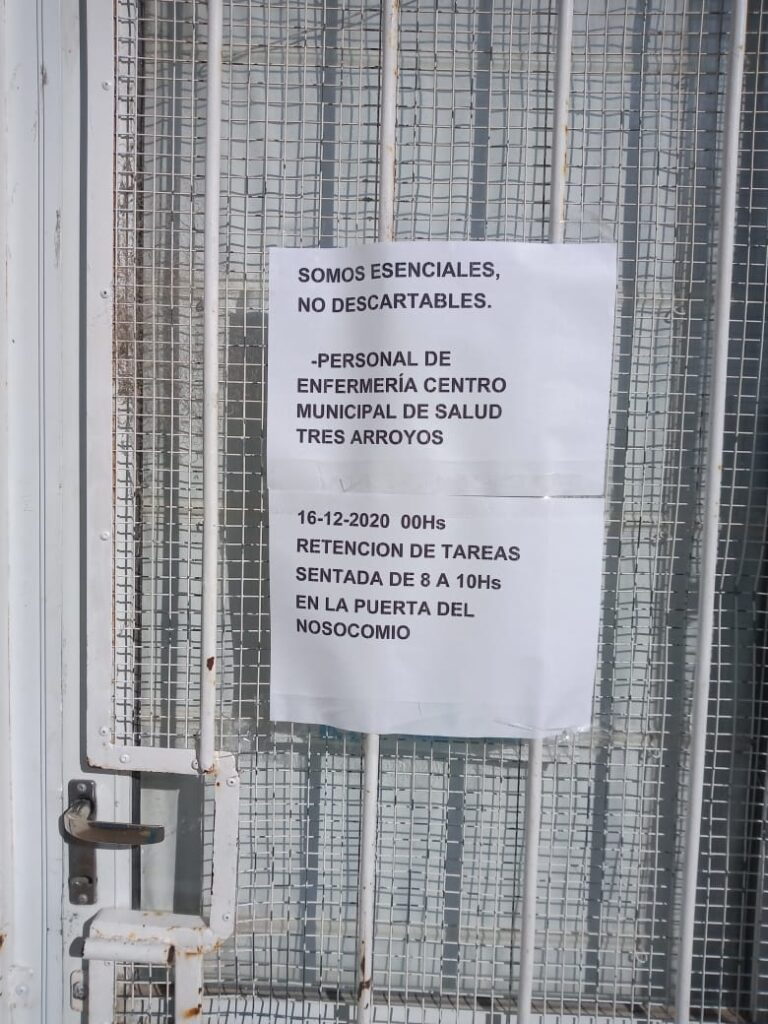 SOMOS ESENCIALES,
NO DESCARTABLES.
-PERSONAL DE
ENFERMERÍA CENTRO
MUNICIPAL DE SALUD
TRES ARROYOS
16-12-2020 00Hs
RETENCION DE TAREAS
SENTADA DE 8 A 10Hs
EN LA PUERTA DEL
NOSOCOMIO